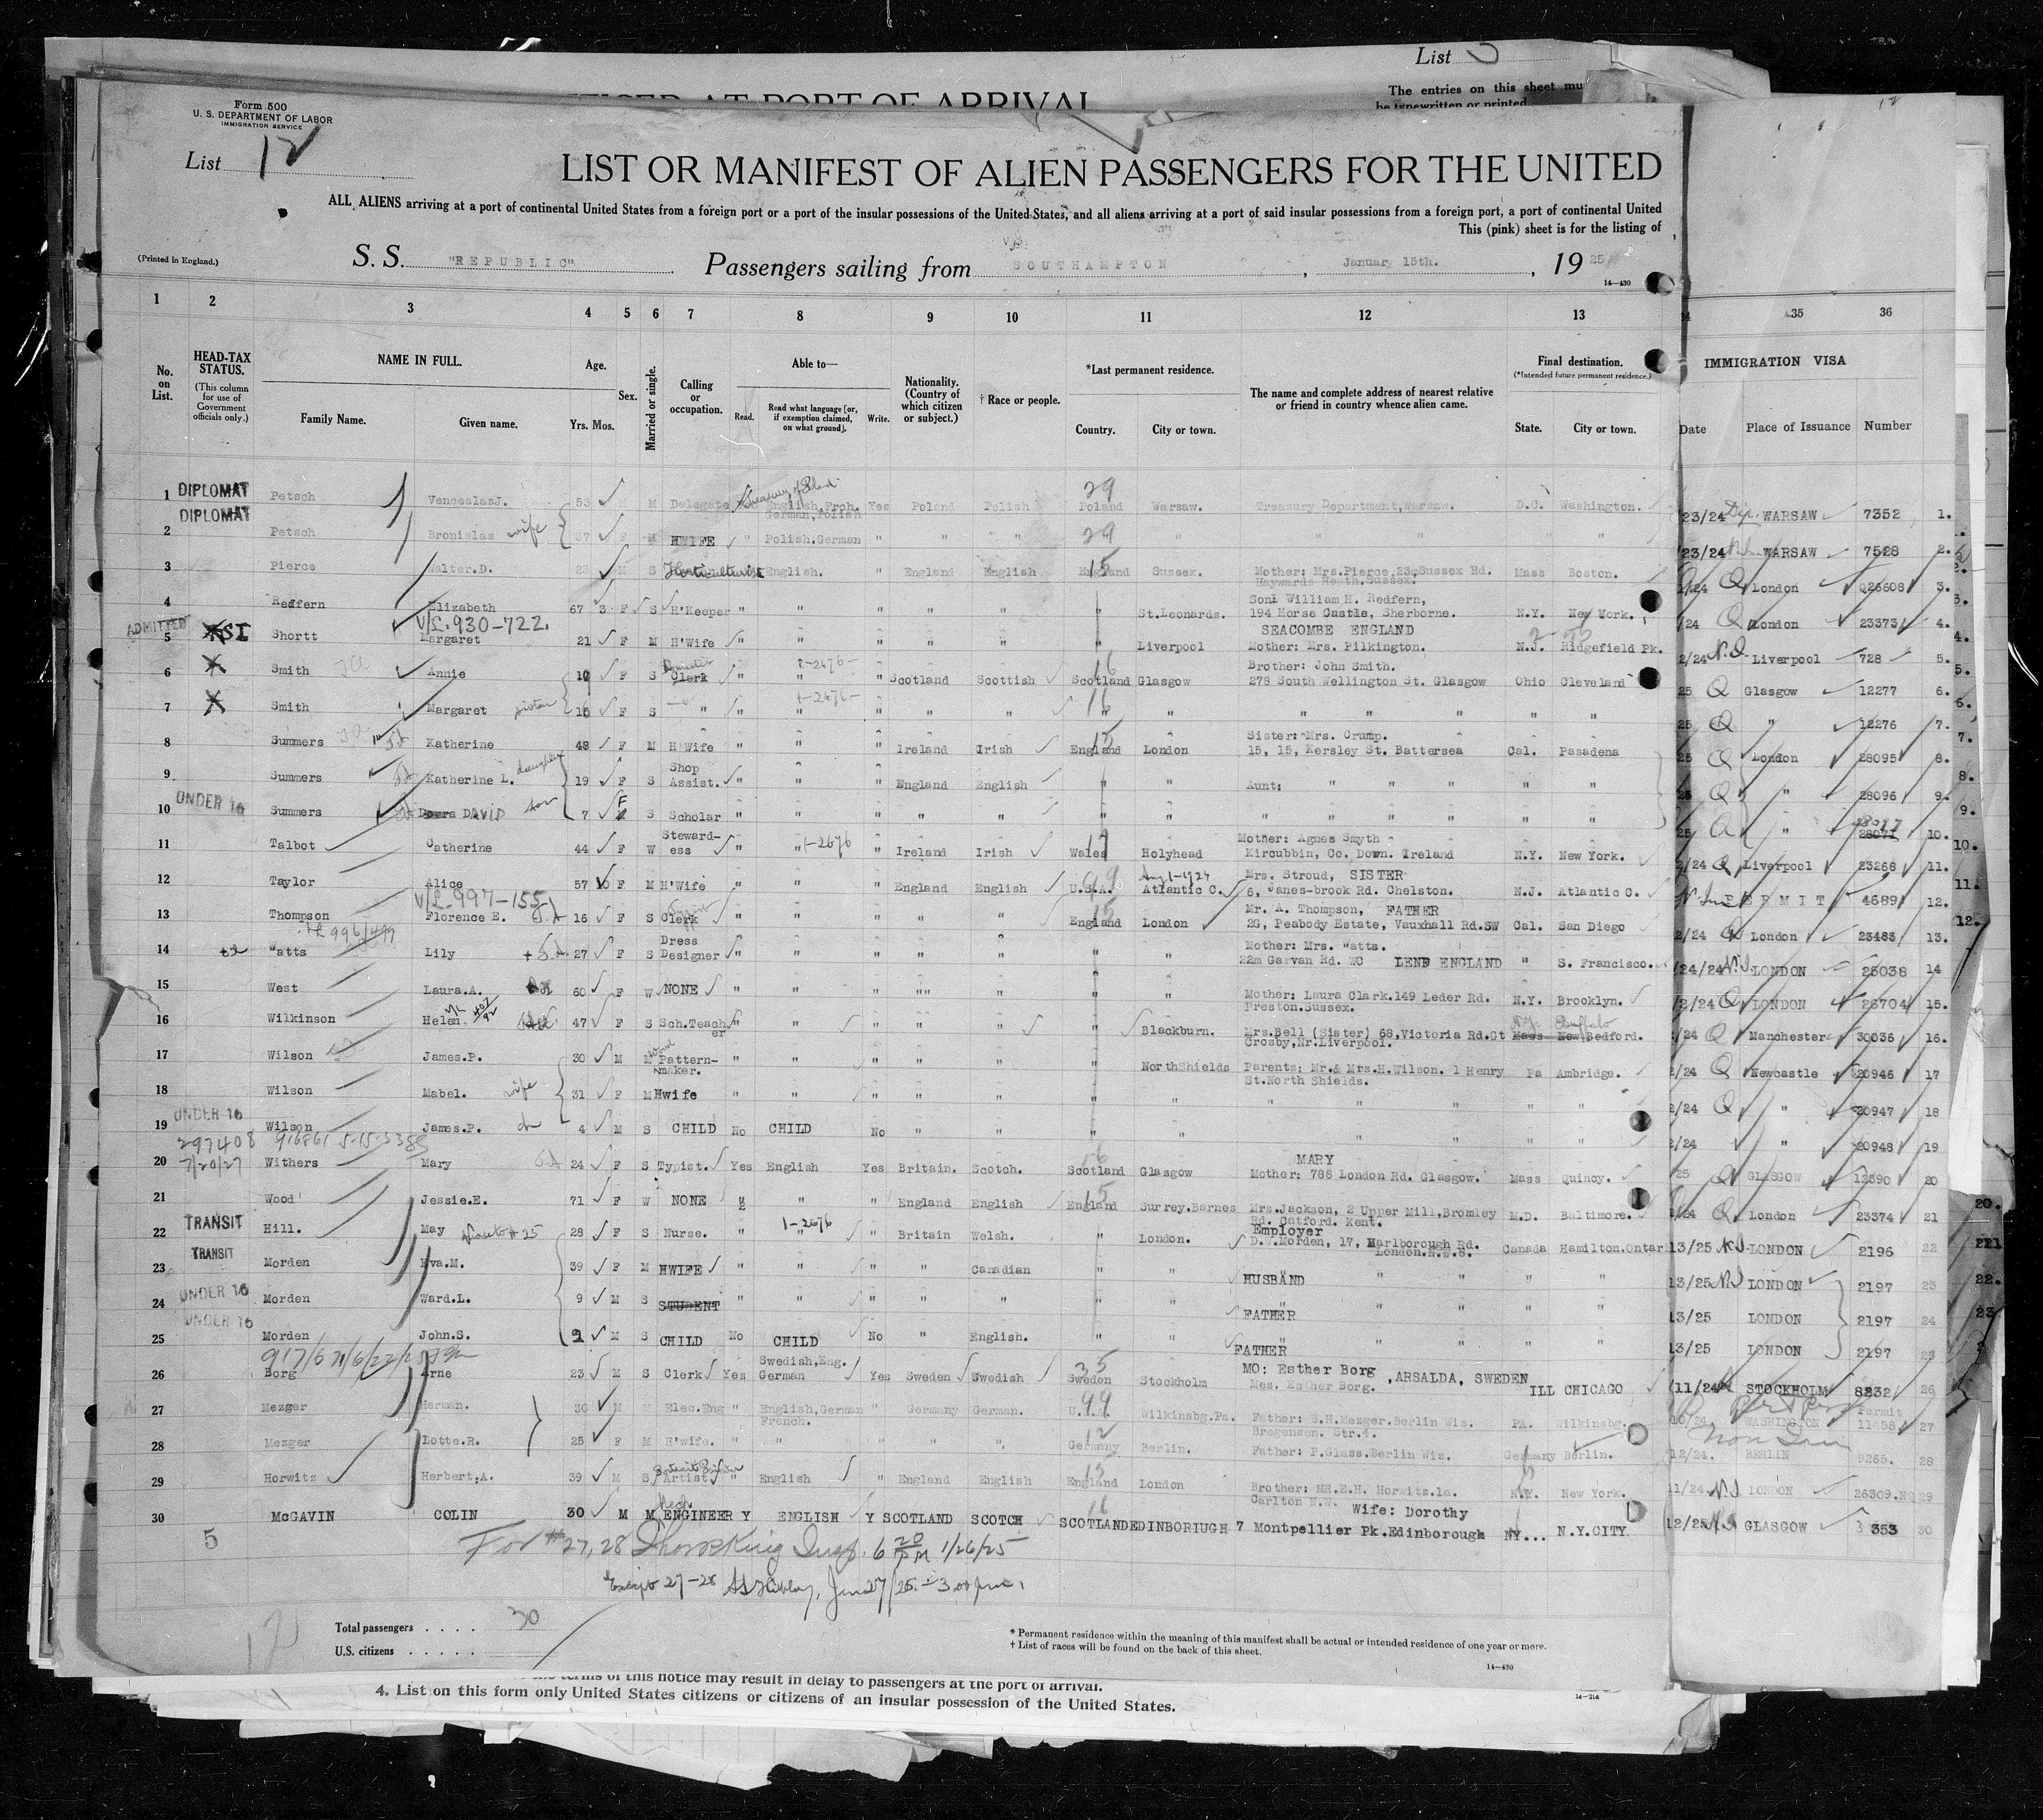 List
The entries on this sheet mu
be typewritten or printed
AT PORT OF ARRIVAL
Form 500
U. S. DEPARTMENT OF LABOR
IMMIGRATION SERVICE
List 12
LIST OR MANIFEST OF ALIEN PASSENGERS FOR THE UNITED
ALL ALIENS arriving at a port of continental United States from a foreign port or a port of the insular possessions of the United States, and all aliens arriving at a port of said insular possessions from a foreign port, a port of continental United
This (pink) sheet is for the listing of
(Printed in England.) S. S. "REPUBLIC" Passengers sailing from SOUTHAMPTON, January 15th., 1925
14—430
1 2 3 4 5 6 7 8 9 10 11 12 13 35 36
No. on List.
HEAD-TAX STATUS.
(This column for use of Government officials only.)
NAME IN FULL.
Family Name. Given name.
Age.
Yrs. Mos.
Sex.
Married or single.
Calling or occupation.
Able to—
Read. Read what language [or, if exemption claimed, on what ground]. Write.
Nationality. (Country of which citizen or subject.)
† Race or people.
*Last permanent residence.
Country. City or town.
The name and complete address of nearest relative or friend in country whence alien came.
Final destination.
(*Intended future permanent residence.)
State. City or town.
IMMIGRATION VISA
Date Place of Issuance Number
1 DIPLOMAT Petsch Venceslas J. 53 M M Delegate English, Frch. German, Polish Yes Poland Polish 29 Poland Warsaw. Treasury Department, Warsaw. D.C. Washington. 23/24 Dip. WARSAW 7352 1.
2 DIPLOMAT Petsch Bronislas wife 37 F M HWIFE " Polish.German " " " 29 " " " " " " 23/24 WARSAW 7528 2.
3 Pierce Walter.D. 23 M S Horticulturist English. " England English 15 England Sussex. Mother: Mrs.Pierce,23,Sussex Rd. Haywards Heath,Sussex. Mass Boston. /24 Q London Q25608 3.
4 Redfern Elizabeth 67 3 F S H'Keeper " " " " " " St.Leonards. Son: William H. Redfern, 194 Horse Castle, Sherborne. N.Y. New York. /24 Q London 23373 4.
V/L 930-722.
ADMITTED 5 SI Shortt Margaret 21 F M H'Wife " " " " " " Liverpool SEACOMBE ENGLAND Mother: Mrs. Pilkington. N.J. Ridgefield Pk. 2/24 N.Q. Liverpool 728 5.
6 Smith Annie F S Domestic Clerk " " " Scotland Scottish 16 Scotland Glasgow Brother: John Smith. 278 South Wellington St. Glasgow Ohio Cleveland 25 Q Glasgow 12277 6.
7 Smith Margaret sister F S " " 1-2676- " " " 16 " " " " " " " " 25 Q " 12276 7.
8 Summers Katherine 48 F M H'Wife " " " Ireland Irish 15 England London Sister: Mrs. Crump. 15, 15, Kersley St. Battersea Cal. Pasadena 25 Q London 28095 8.
9 Summers Katherine L. daughter 19 F S Shop Assist. " " " England English " " Aunt: " " " " " 25 Q " 28096 9.
10 UNDER 16 Summers DAVID son 7 F S Scholar " " " " " " " " " " " " " 25 Q " 28097 28071 10.
11 Talbot Catherine 44 F W Stewardess " " 1-2676 " Ireland Irish 17 Wales Holyhead Mother: Agnes Smyth Kircubbin, Co. Down. Ireland N.Y. New York. 2/24 Q Liverpool 23268 11.
12 Taylor Alice 57 10 F M H'Wife " " " England English 99 U.S.A. Aug 1-1924 Atlantic C. Mrs. Stroud, SISTER 6, Janes-brook Rd. Chelston. N.J. Atlantic C. PERMIT 4689 12.
V/L 997-155
13 Thompson Florence E. 16 F S Typist Clerk " " " " " 15 England London Mr. A. Thompson, FATHER 2G, Peabody Estate, Vauxhall Rd.SW Cal. San Diego 2/24 Q London 23483 13.
14 Watts Lily 27 F S Dress Designer " " " " " " " Mother: Mrs. Watts. 22m Garvan Rd. WC ENGLAND " S. Francisco. /24/24 N.Q. LONDON 25038 14
15 West Laura.A. 60 F W NONE " " "" " " " Mother: Laura Clark.149 Leder Rd. Preston.Sussex. N.Y. Brooklyn. /2/24 Q LONDON 26704 15.
16 Wilkinson Helen. 47 F S Sch.Teacher " " " " " " Blackburn. Mrs.Bell (Sister) 68,Victoria Rd.Gt Crosby,Nr.Liverpool. N.Y. Buffalo Mass New Bedford. 2/24 Q Manchester 30036 16.
17 Wilson James.P. 30 M M Wood Pattern-maker. " " " " " " NorthShields Parents: Mr.& Mrs.H.Wilson. 1 Henry St.North Shields. Pa Ambridge. 2/24 Q Newcastle 20946 17
18 Wilson Mabel. wife 31 F M Hwife " " " " " " " " " " " " 2/24 Q " 20947 18
19 UNDER 16 Wilson James.P. 4 M S CHILD No CHILD No " " " " " " " " " 2/24 " 20948 19
297408
7/20/27
20 Withers Mary 24 F S Typist. Yes English Yes Britain. Scotch. 16 Scotland Glasgow MARY Mother: 788 London Rd. Glasgow. Mass Quincy. 25 Q GLASGOW 12390 20
21 Wood Jessie.E. 71 F W NONE " " " England English 15 England Surrey.Barnes Mrs.Jackson, 2 Upper Mill,Bromley Rd. Catford. Kent. M.D. Baltimore. 2/24 Q London 23374 21
22 TRANSIT Hill. May 28 F S Nurse. " 1-2676 " Britain Welsh. " London. Employer D.W.Morden, 17, Marlborough Rd. London.N.W.8. Canada Hamilton.Ontari 13/25 LONDON 2196 22
23 TRANSIT Morden Eva.M. 39 F M HWIFE " " " " Canadian " " HUSBAND " " " " 13/25 LONDON 2197 23
24 UNDER 16 Morden Ward.L. 9 M S STUDENT " " " " " " " FATHER " " " " 13/25 LONDON 2197 24
25 UNDER 16 Morden John.S. M S CHILD No CHILD No " English. " " FATHER " " " " 13/25 LONDON 2197 25
26 Borg Arne 23 M S Clerk Yes Swedish,Eng. German Yes Sweden Swedish 35 Sweden Stockholm MO: Esther Borg Mes. Esther Borg. ,ARSALDA, SWEDEN ILL CHICAGO /11/24 STOCKHOLM 8832 26
27 Mezger Herman. 30 M M Elec.Eng " English,German French. " Germany German. 99 U.S. Wilkinsbg.Pa. Father: S.H.Mezger.Berlin Wis. Bregensen. Str.4. PA. Wilkinsbg. 10/24 WASHINGTON Permit 11458 27
28 Mezger Lotte.R. 25 F M H'wife. " " " " " 12 Germany Berlin. Father: P.Glass.Berlin Wis. Germany Berlin. 12/24. BERLIN 9265. 28
29 Horwitz Herbert,A. 39 M S Artist " English " England English 15 England London Brother: MR.E.H. Horwitz.1a. Carlton N.W. N.Y. New York. 11/24 LONDON 26309.NQ 29
30 McGAVIN COLIN 30 M M Mech ENGINEER Y ENGLISH Y SCOTLAND SCOTCH 16 SCOTLAND EDINBORIUGH Wife: Dorothy 7 Montpellier Pk.Edinborough NY... N.Y.CITY 12/25 GLASGOW 353 30
5
For #27, 28 Insp. 6 20 PM 1/26/25
Except 27-28
Total passengers . . . . 30
U.S. citizens . . . . .
* Permanent residence within the meaning of this manifest shall be actual or intended residence of one year or more.
† List of races will be found on the back of this sheet.
14—430
the terms of this notice may result in delay to passengers at the port of arrival.
4. List on this form only United States citizens or citizens of an insular possession of the United States.
14—214